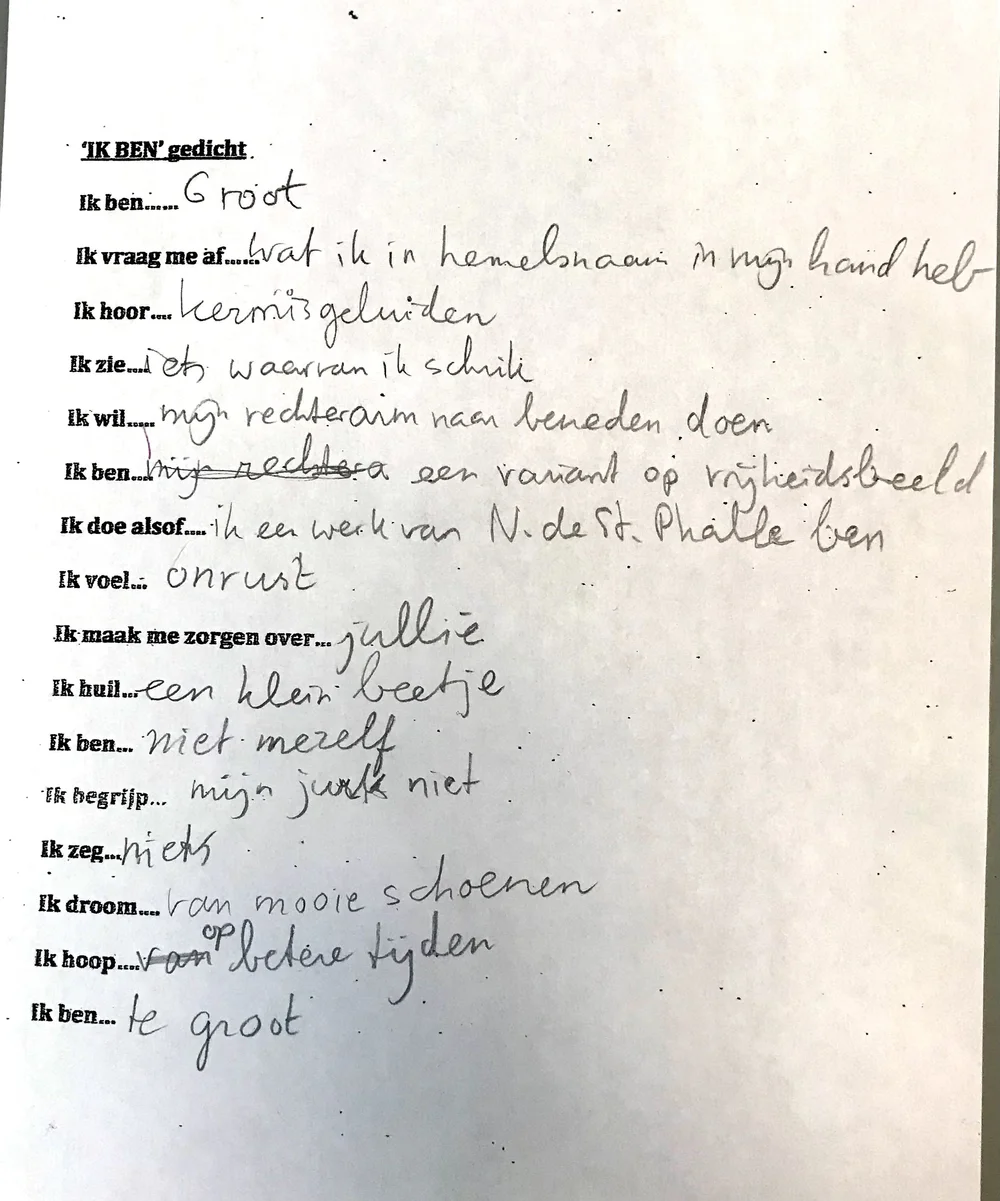 'IK BEN' gedicht
Ik ben...... Groot
Ik vraag me af......Wat ik in hemelsnaam in mijn hand heb
Ik hoor.... kermisgeluiden
Ik zie....iets waarvan ik schrik
Ik wil..... mijn rechterarm naar beneden doen
Ik ben...mijn rechtera een variant op vrijheidsbeeld
Ik doe alsof.... ik een werk van N. de St. Phalle ben
Ik voel... onrust
Ik maak me zorgen over... jullie
Ik huil...een klein beetje
Ik ben... niet mezelf
Ik begrijp... mijn jurk niet
Ik zeg...niets
Ik droom.... van mooie schoenen
Ik hoop....van op betere tijden
Ik ben... te groot